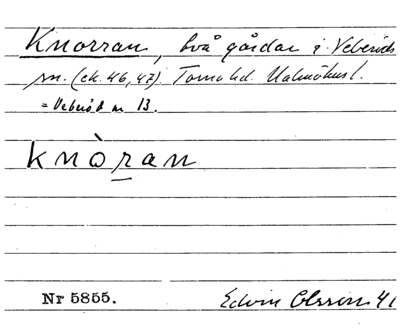 Knorran, två gårdar i Veberöds
sn. (ek. 46, 47). Torna hd. Malmöhus l.
= Veberöd nr 13.
knòran
Nr 5855. Edvin Olsson 41